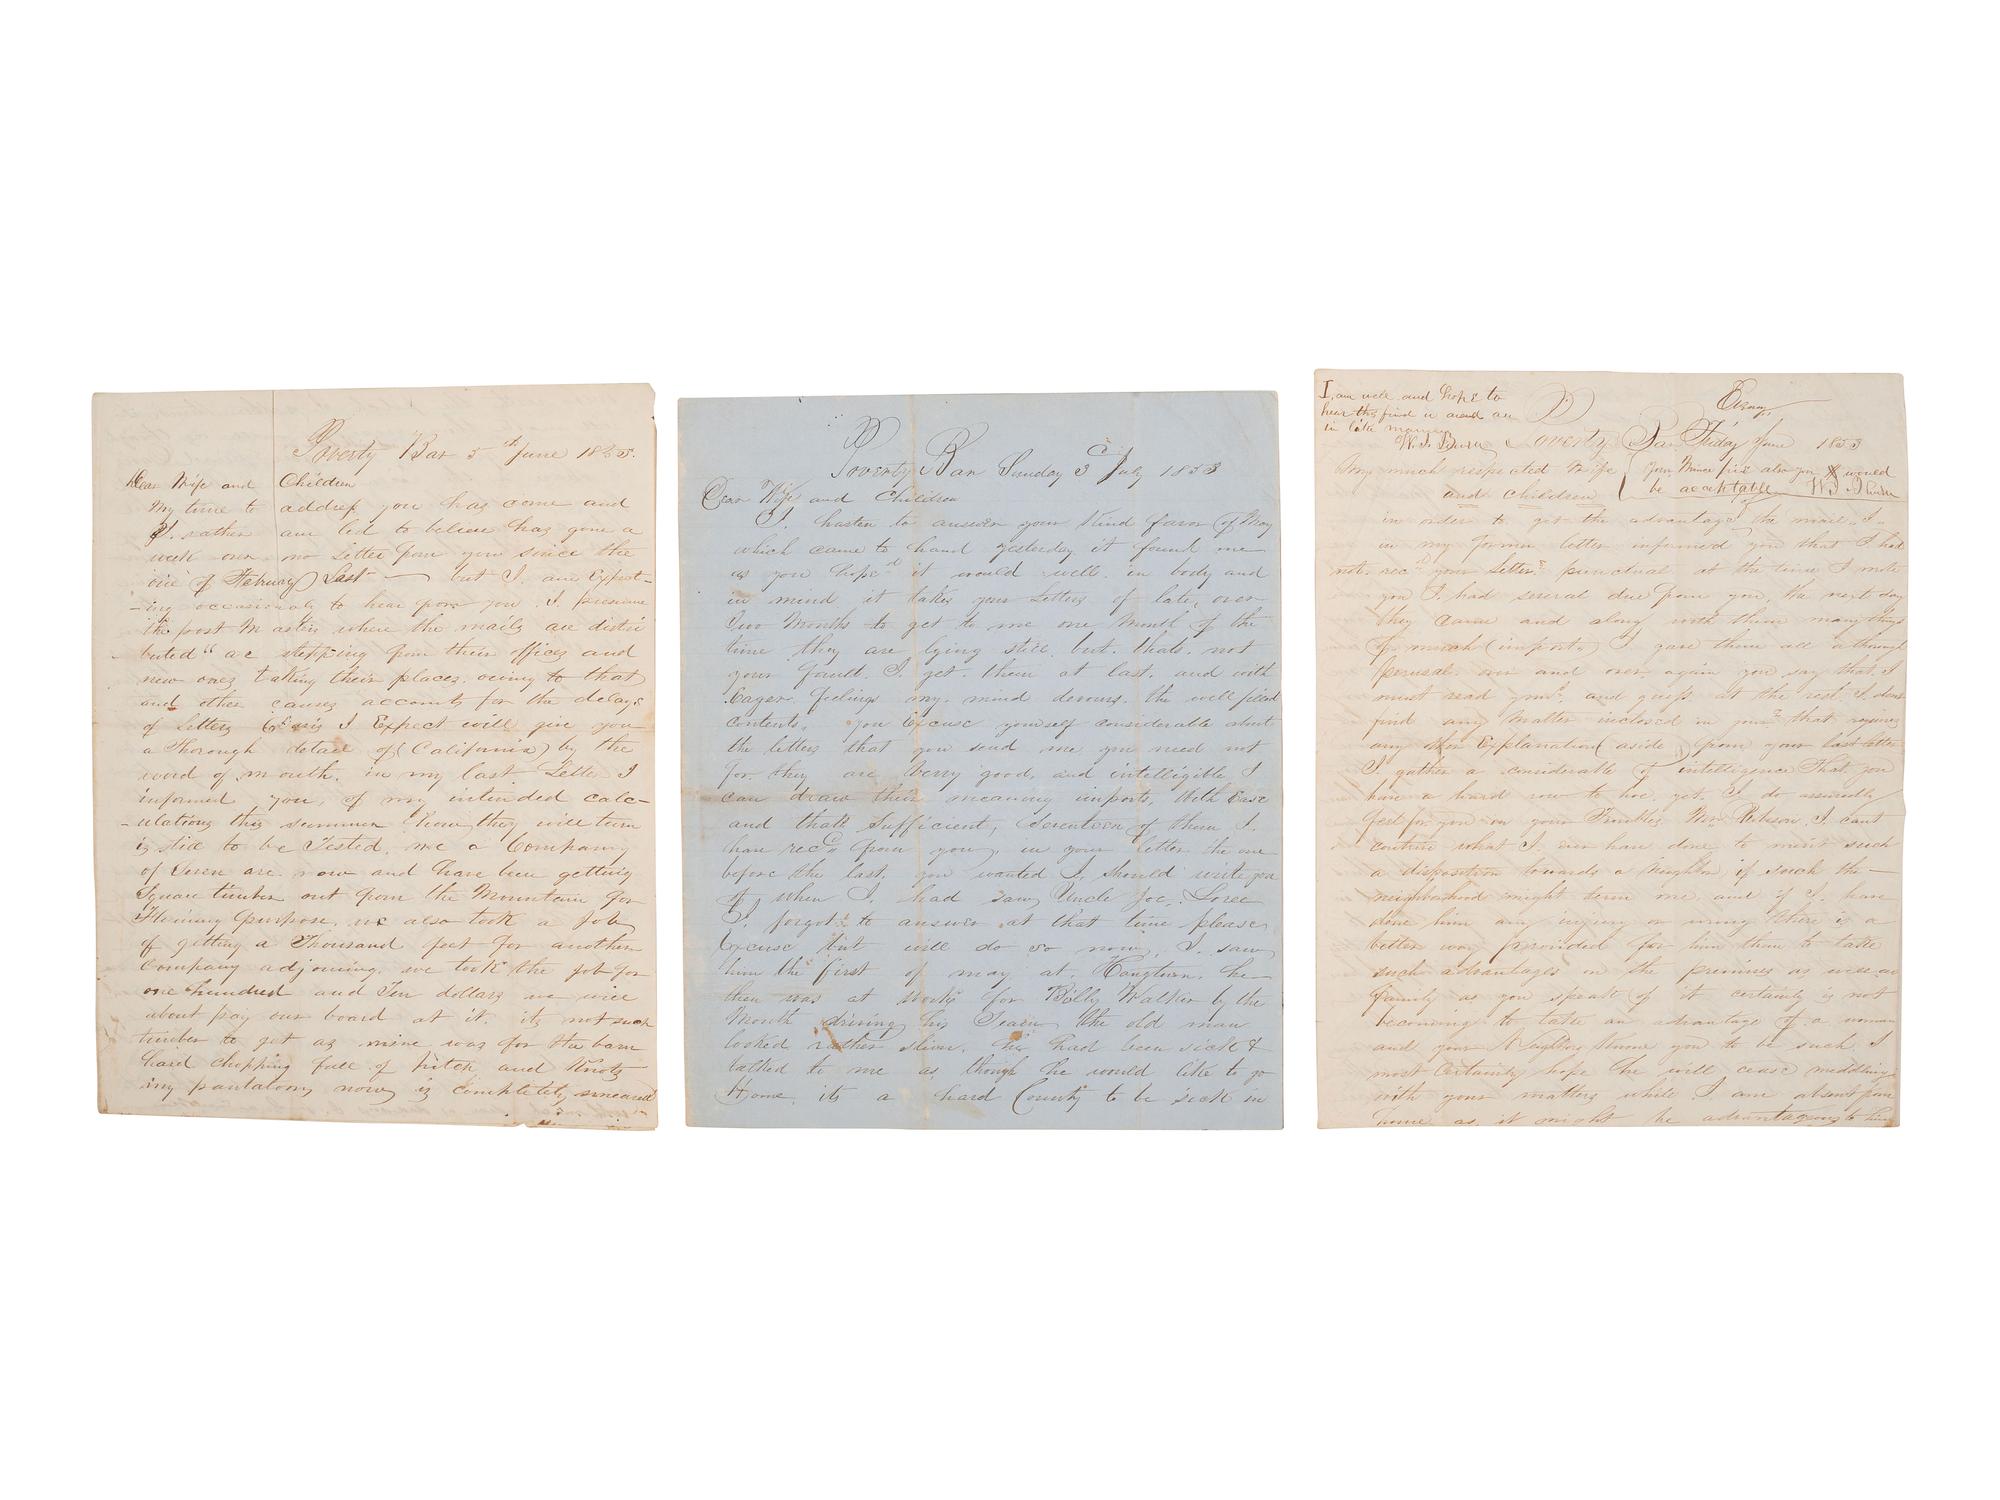 Poverty Bar 5th June 1853.
Dear Wife and Children
My time to address you has come and
I. rather am led to believe has gone a
week over no Letter from you since the
one of Febuary Last — but I. am Expect-
-ing occasionaly to hear from you. I. presume
the post Masters where the mails are distri
buted" are stepping from their offices and
new ones taking their places. owing to that
and other causes accounts for the delays
of Letters I Expect will give you
a Thorough detail of (California) by the
word of mouth. in my last Letter I
informed you, of my intended calc-
-ulations this summer how they will turn
is still to be Tested. we a Company
of Seven are now and have been getting
Square timber out from the Mountain for
Fluming purpose. we also took a Job
of getting a Thousand feet for another
Company adjoining. we took the job for
one hundred and Ten dollars we will
about pay our board at it. its not such
timber to get as mine was for the barn
hard chopping full of pitch and Knots
my pantaloons now is completely smeared
Poverty Bar Sunday 3d July 1853
Dear Wife and Children
I. hasten to answer your Kind favor of May
which came to hand yesterday it found me
as you hope'd it would well. in body and
in mind it takes your Letters of late, over
Two Months to get to me one Month of the
time they are lying still. but. thats. not
your fault. I. get. them at last. and with
Eager feelings my. mind devours. the well filled
contents. you Excuse yourself considerable about
the letters that you send me you need not
for. they are Verry good, and intelligible I
can draw their meaning imports, With Ease
and thats Sufficient, Seventeen of them I.
have recd from you, in your letter the one
before the last. you wanted I. should write you
if when I. had saw Uncle Joe. Loree
I. forgot to answer at that time please
Excuse but will do so now, I. saw
him the first of may at. Hangtown. he
then was at work for Billy Walker by the
Month driving his Team, the old man
looked rather slim. he had been sick &
talked to me as though he would like to go
Home. its a hard County to be sick in
I, am well and hope to
hear this find u and all
in like manner
W. J. Burn
Poverty Bar Friday June 1853
My much respected Wife
and children
your Mince pies also you would
be acceptable
in order to get the advantage of the mail. I.
in my former letter informed you that I. had
not. recd your Letters. punctual at the time I wrote
you I. had several due from you, the next day
they came and along with them many things
of much (import.) I gave them all a through
perusal. over and over again you say that. I
must read yours. and guess at the rest. I. dont
find any Matter inclosed in yours that requires
any Explanation (aside) from your last letter
I. gather a considerable of intelligence That you
have a hard row to hoe. yet. I. do assuredly
feel for you in your Troubles Mr. I. cant
what I. ever have done to merit such
a disposition towards a Neighbor if such the—
neighborhood might term me, and if I. have
done him any injury or wrong there is a
better way provided for him than to take
such advantages in the premises as well as
family as you speak of it certainly is not
becoming to take an advantage of a woman
and your Neighbors know you to be such. I
most certainly hope he will cease meddling
with your matters while I. am absent from
home as. it might be advantageous to him